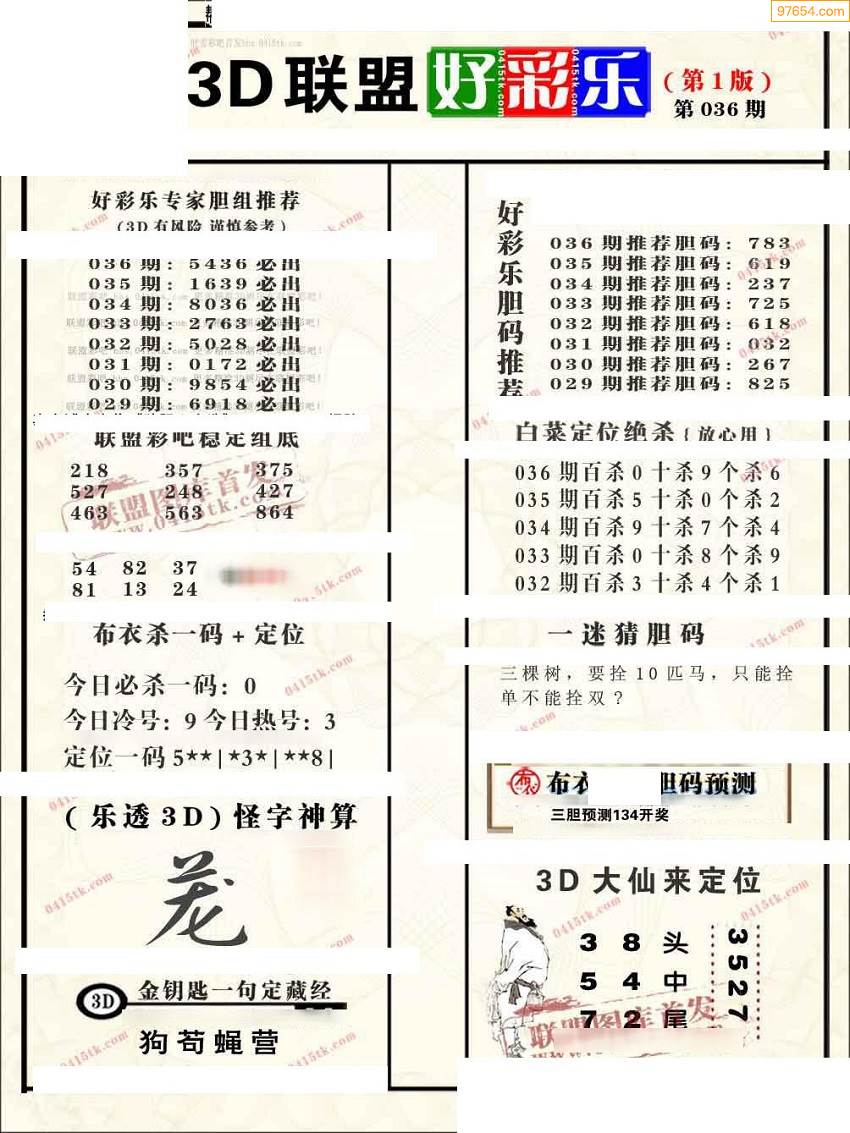 97654.com
3D联盟好彩乐
(第1版)
第036期
好彩乐专家胆组推荐
(3D有风险 谨慎参考)
036期: 5436必出
035期: 1639必出
034期: 8036必出
033期: 2763必出
032期: 5028必出
031期: 0172必出
030期: 9854必出
029期: 6918必出
联盟彩吧稳定组底
218 357 375
527 248 427
463 563 864
54 82 37
81 13 24
布衣杀一码+定位
今日必杀一码: 0
今日冷号: 9 今日热号: 3
定位一码 5**|*3*|**8|
(乐透3D)怪字神算
茏
3D 金钥匙一句定藏经
狗苟蝇营
好彩乐胆码推荐
036期推荐胆码: 783
035期推荐胆码: 619
034期推荐胆码: 237
033期推荐胆码: 725
032期推荐胆码: 618
031期推荐胆码: 032
030期推荐胆码: 267
029期推荐胆码: 825
白菜定位绝杀{放心用}
036期百杀0十杀9个杀6
035期百杀5十杀0个杀2
034期百杀9十杀7个杀4
033期百杀0十杀8个杀9
032期百杀3十杀4个杀1
一迷猜胆码
三棵树，要拴10匹马，只能拴
单不能拴双？
布衣 胆码预测
三胆预测134开奖
3D大仙来定位
3 8 头
5 4 中
7 2 尾
3527
联盟图库首发
www.0415tk.com
0415tk.com